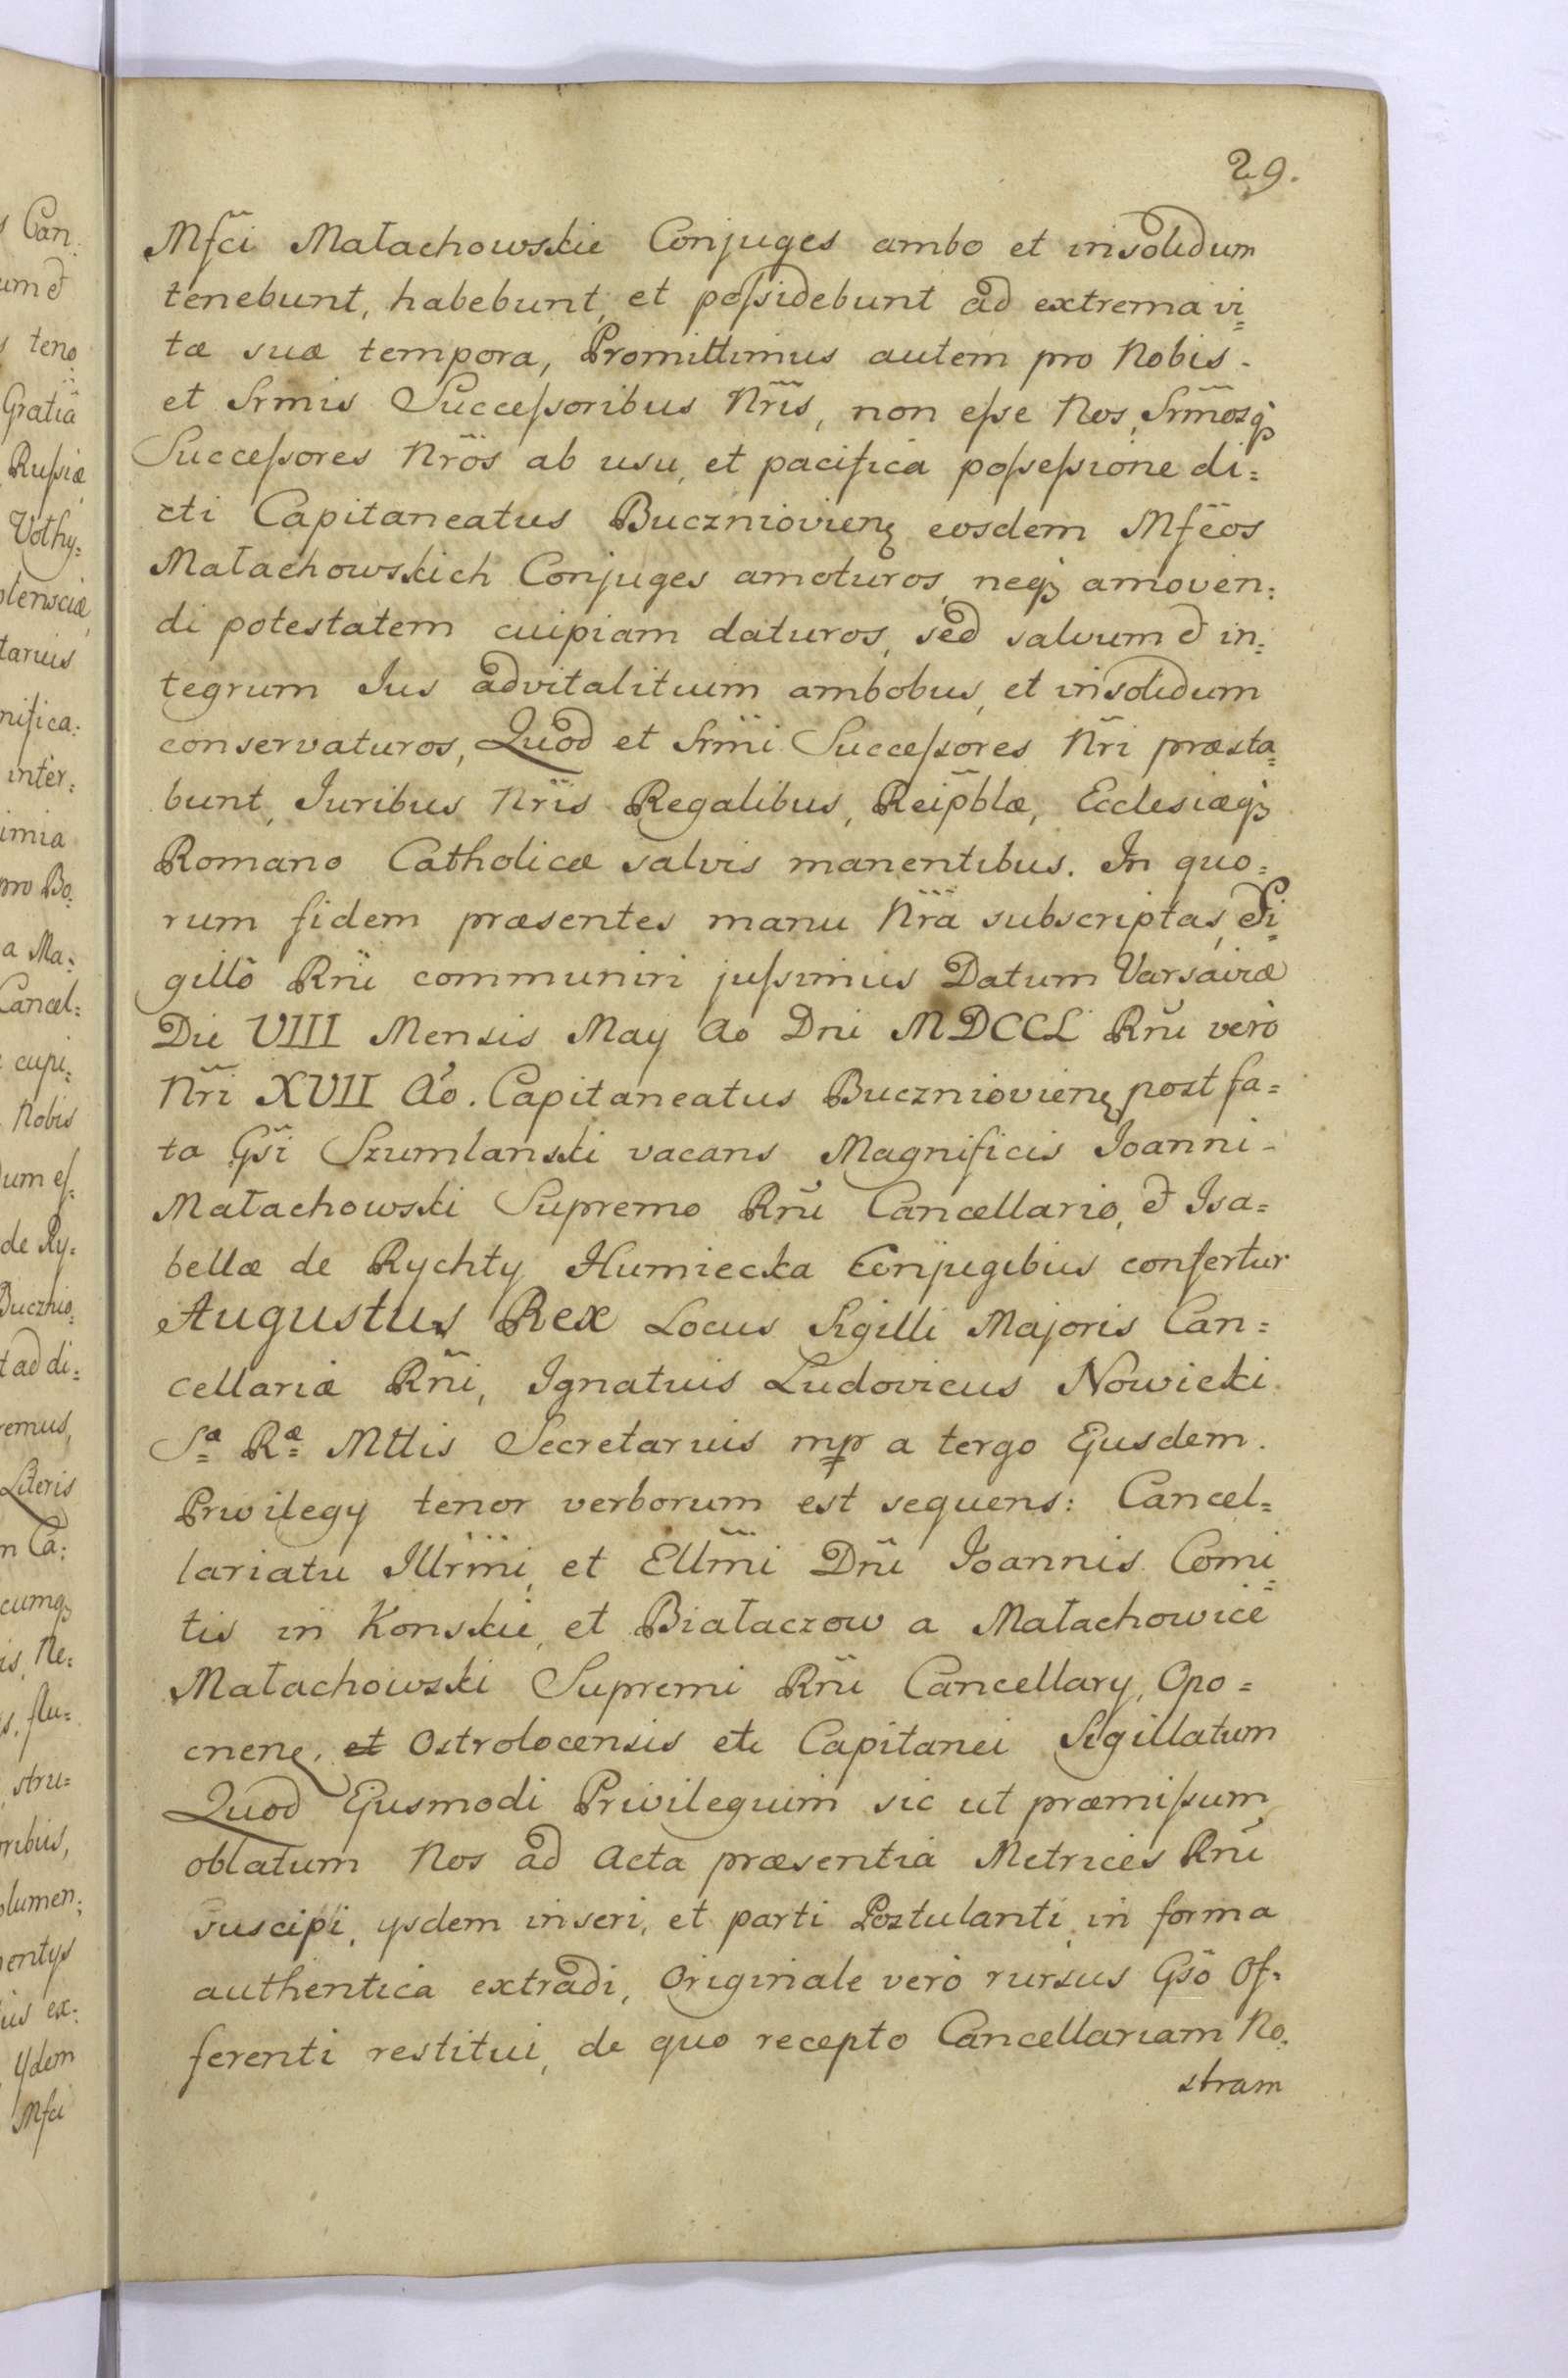 29.
Mſci Małachowskie Conjuges ambo et insolidum
tenebunt, habebunt, et poſsidebunt ad extrema vi=
tæ suæ tempora, Promittimus autem pro Nobis.
et Srmis Succeſsoribus Nrĩs, non eſse Nos, Srm̃osq̃
Succeſsores Nrõs ab usu, et pacifica poſseſsione di=
cti Capitaneatus Buczniovien̨ eosdem Mſc̃os
Małachowskich Conjuges amoturos, neq̃ amoven=
di potestatem cuipiam daturos, sed salvum & in=
tegrum Jus advitalitium ambobus, et insolidum
conservaturos, Quod et Srmĩ Succeſsores Nrĩ præsta=
bunt, Juribus Nrĩs Regalibus, Reip̃blæ, Ecclesiæq̃
Romano Catholicæ salvis manentibus. In quo=
rum fidem præsentes manu Nrã subscriptas, Si=
gillô Rnĩ communiri juſsimus Datum Varsaviæ
Die VIII Mensis May Ao Dni MDCCL Rnĩ verò
Nrĩ XVII Ao. Capitaneatus Buczniovien̨ post fa=
ta Gsĩ Szumlanski vacans Magnificis Joanni-
Małachowski Supremo Rnĩ Cancellario, & Isa=
bellæ de Rychty Humiecka Conjugibus confertur
Augustus Rex Locus Sigilli Majoris Can=
cellariæ Rnĩ, Ignatius Ludovicus Nowicki
Sæ Ræ Mttis Secretarius mp a tergo Ejusdem.
Privilegy tenor verborum est sequens: Cancel=
lariatu Illrmĩ, et Ellmĩ Dnĩ Joannis Comi=
tis in Konskie, et Białaczow a Małachowice
Małachowski Supremi Rnĩ Cancellary, Opo=
cnen̨. et Ostrolocensis etc Capitanei Sigillatum
Quod Ejusmodi Privilegium sic ut præmiſsum
oblatum Nos ad Acta præsentia Metrices Rnĩ
suscipi, ysdem inseri, et parti Postulanti, in forma
authentica extradi, Originale verò rursus Gsõ Of=
ferenti restitui, de quo recepto Cancellariam No=
stram